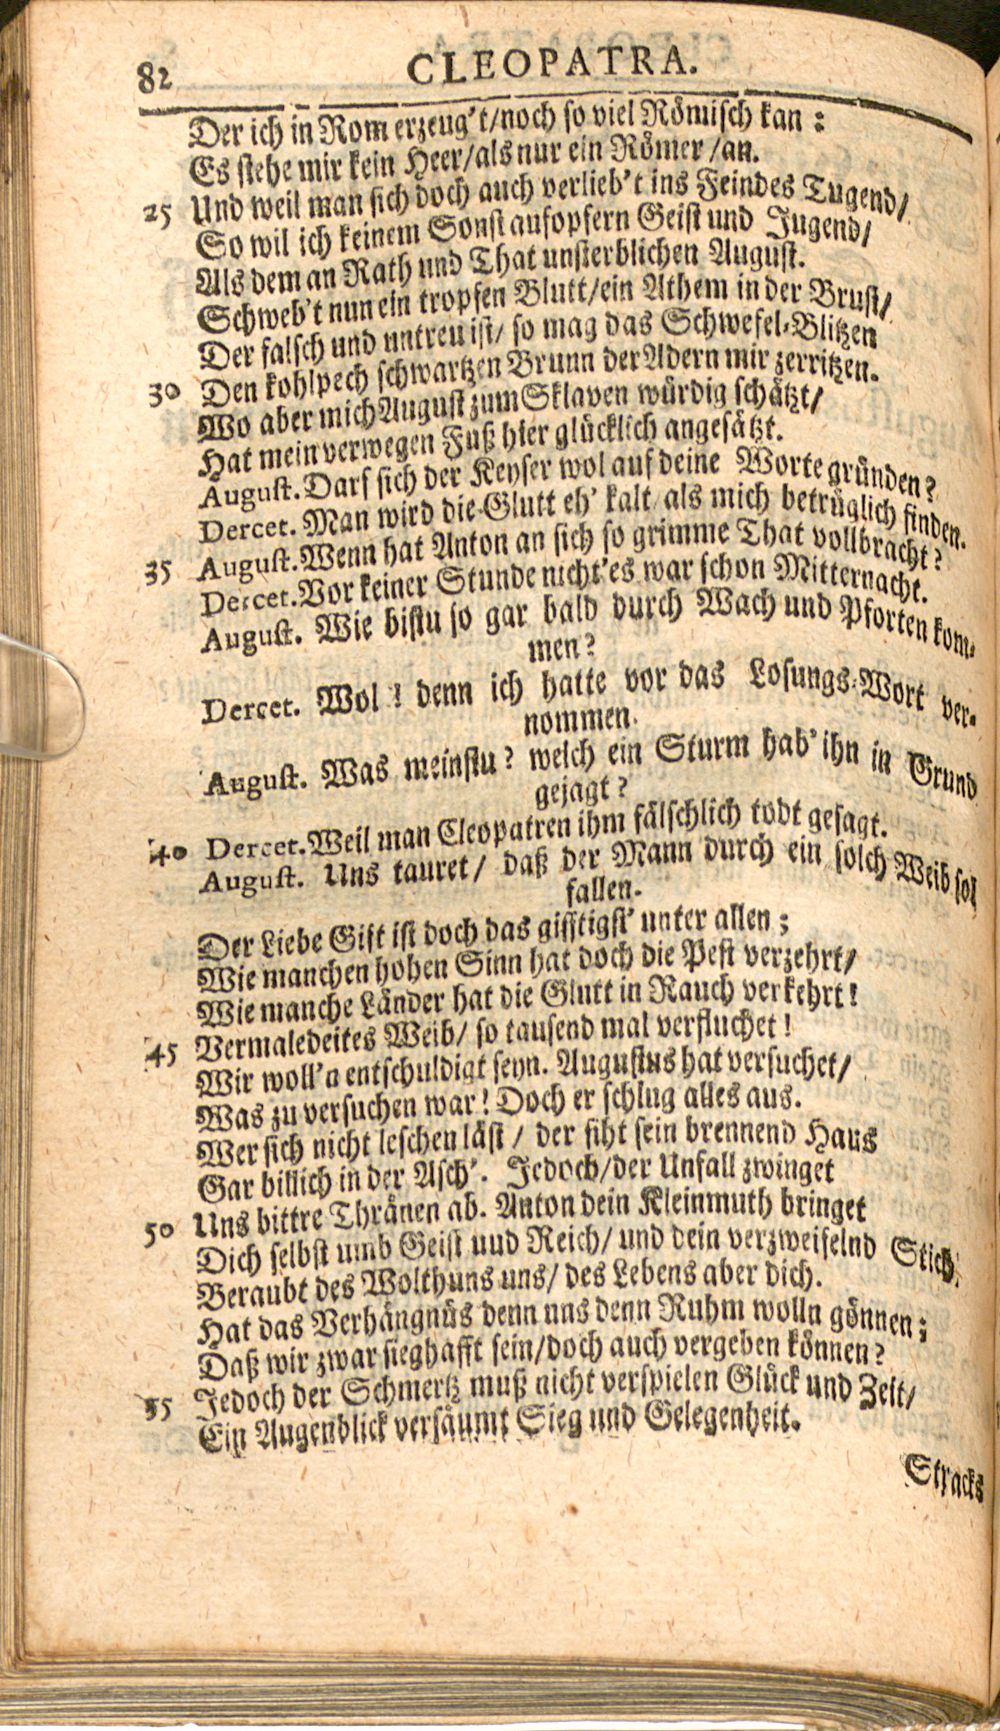 82 CLEOPATRA.
Der ich in Rom erzeug't/noch so viel Römisch kan:
Es stehe mir kein Heer/als nur ein Römer/an.
25 Und weil man sich doch auch verlieb't ins Feindes Tugend/
So wil ich keinem Sonst aufopfern Geist und Jugend/
Als dem an Rath und That unsterblichen August.
Schweb't nun ein tropfen Blutt/ein Athem in der Brust/
Der falsch und untreu ist/ so mag das Schwefel-Blitzen
30 Den kohlpech schwartzen Brunn der Adern mir zerritzen.
Wo aber mich August zum Sklaven würdig schätzt/
Hat mein verwegen Fuß hier glücklich angesätzt.
August. Darf sich der Keyser wol auf deine Worte gründen?
Dercet. Man wird die Glutt eh' kalt/ als mich betrüglich finden.
35 August. Wenn hat Anton an sich so grimme That vollbracht?
Dercet. Vor keiner Stunde nicht' es war schon Mitternacht.
August. Wie bistu so gar bald durch Wach und Pforten kom-
men?
Dercet. Wol! denn ich hatte vor das Losungs-Wort ver-
nommen.
August. Was meinstu? welch ein Sturm hab' ihn in Grund
gejagt?
40 Dercet. Weil man Cleopatren ihm fälschlich todt gesagt.
August. Uns tauret/ daß der Mann durch ein solch Weib sol
fallen.
Der Liebe Gift ist doch das gifftigst' unter allen;
Wie manchen hohen Sinn hat doch die Pest verzehrt/
Wie manche Länder hat die Glutt in Rauch verkehrt!
45 Vermaledeites Weib/ so tausend mal verfluchet!
Wir woll'n entschuldigt seyn. Augustus hat versuchet/
Was zu versuchen war! Doch er schlug alles aus.
Wer sich nicht leschen läst/ der siht sein brennend Haus
Gar billich in der Asch'. Jedoch/der Unfall zwinget
50 Uns bittre Thränen ab. Anton dein Kleinmuth bringet
Dich selbst umb Geist uud Reich/ und dein verzweifelnd Stich.
Beraubt des Wolthuns uns/ des Lebens aber dich.
Hat das Verhängnüs denn uns denn Ruhm wolln gönnen;
Daß wir zwar sieghafft sein/doch auch vergeben können?
55 Jedoch der Schmertz muß nicht verspielen Glück und Zeit/
Ein Augenblick versäumt Sieg und Gelegenheit.
Stracks